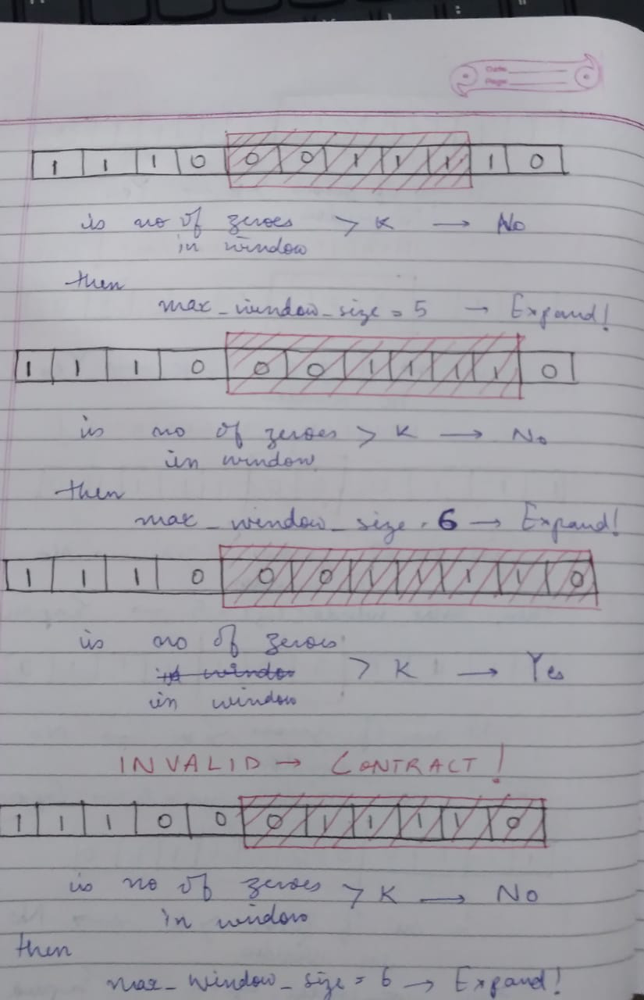 Date:
Page:
1 1 1 0 0 0 1 1 1 1 0
is no of zeroes > K → No
in window
then
max_window_size = 5 → Expand!
1 1 1 0 0 0 1 1 1 1 0
is no of zeroes > K → No
in window
then
max_window_size = 6 → Expand!
1 1 1 0 0 0 1 1 1 1 0
is no of zeroes
in window > K → Yes
in window
INVALID → CONTRACT!
1 1 1 0 0 0 1 1 1 1 0
is no of zeroes > K → No
in window
then
max_window_size = 6 → Expand!